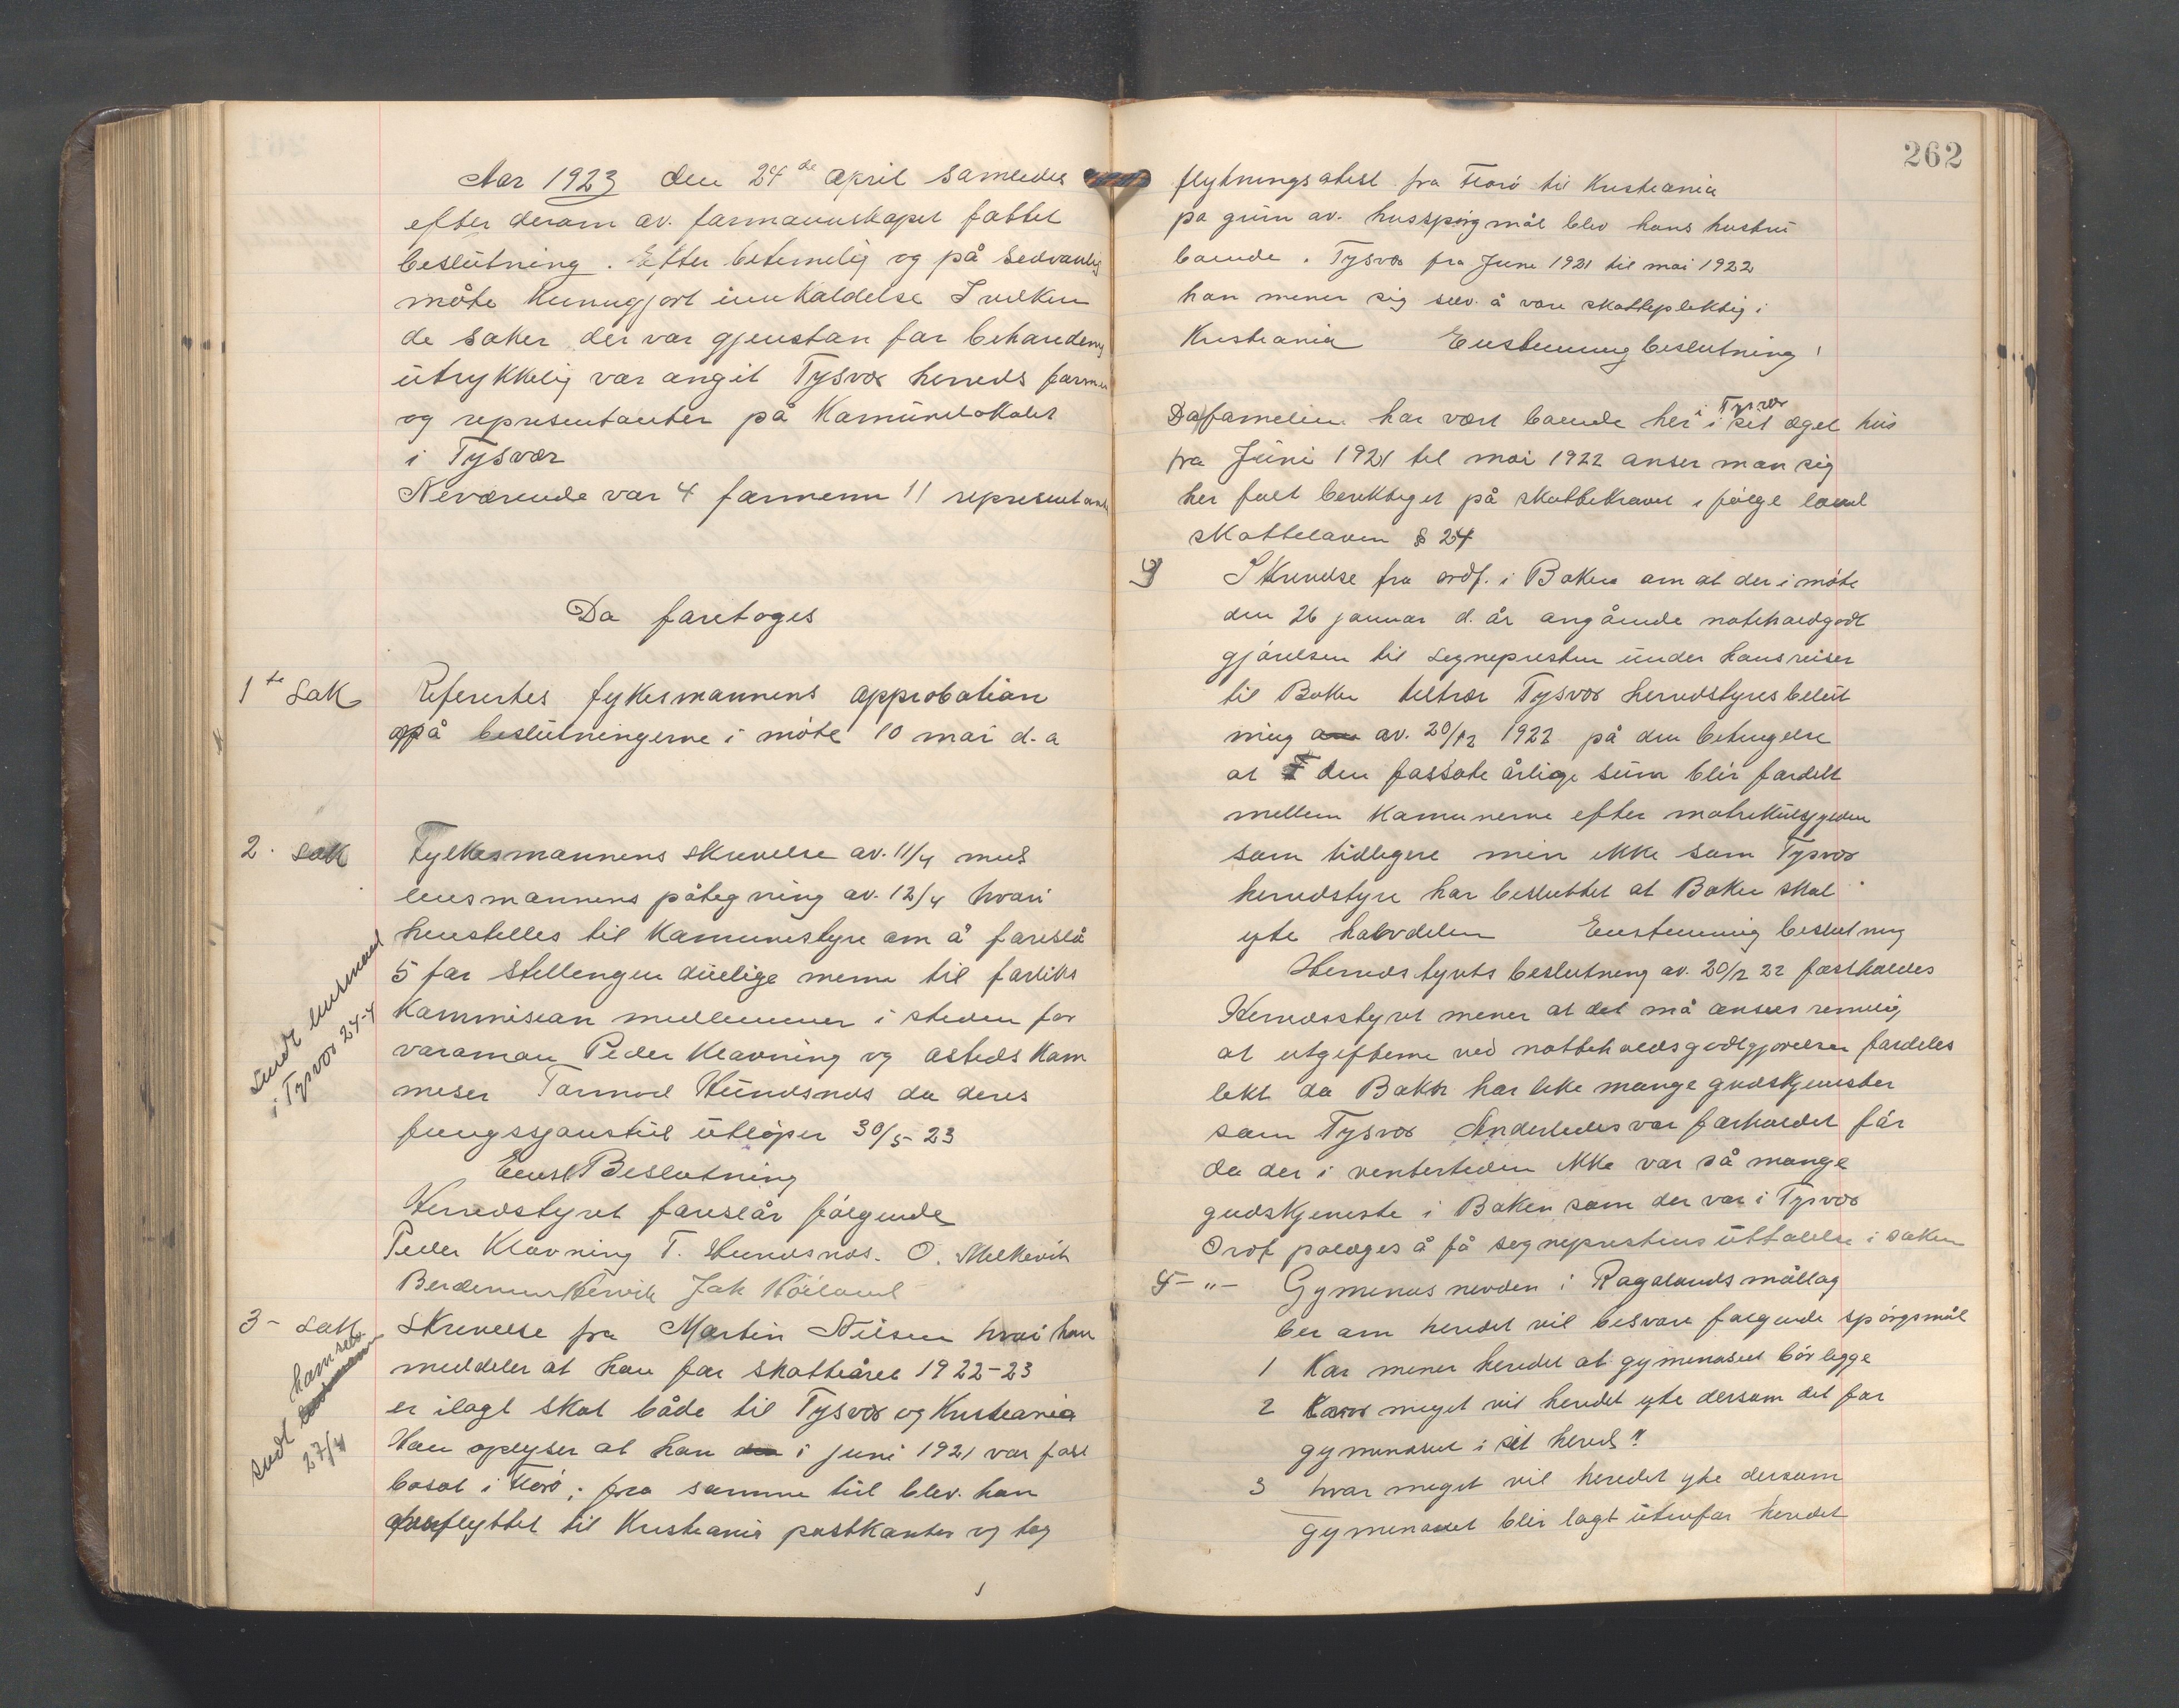 Aar 1923 den 24de april samledes
efter derom av. formannskapet fattet
beslutning. Efter betimelig og på sedvanlig
måte kunngjort innkaldelse I vilken
de saker der var gjenstan for behandeng
utrykkelig var angit Tysvær herreds formen
og representanter på Komunelokalet
i Tysvær
Neværende var 4 formenn 11 representant
Da foretoges
1te Sak Refereertes fykesmannens approbation
på beslutningerne i møte 10 mai d.a
2. sak Fylkesmannens skrivelse av. 11/4 med
lensmannens påtegning av. 12/4 hvori
henstilles til Kommunestyre om å foreslå
5 for stillengen duelige menn til forliks
Kommisean medlemmer i steden for
varaman Peder Klovning og asteds Kom
meser Tormod Hundsnes da deres
fungsjonstid utløper 30/5-23
Sendt lensmand
i Tysvær 24-4
Enst Beslutning
Herredstyret foreslår følgende
Peder Klovning T. Hundsnes. O. Melkevik
Hervik Jak Høiland
3- Sak Skrivelse fra Martin Nilsen hvori han
meddeler at han for skatteåret 1922-23
er ilagt skat både til Tysvær og Kristiania
Han oplyser at han i juni 1921 var fast
bosat i Florø; fra samme tid blev. han
forflyttet til Kristiania postkontor og tog
sendt ham selv
27/4
262
flytningsatest fra Florø til Kristiania
pa grun av. husspørgmål blev hans hustru
boende i Tysvær fra June 1921 til mai 1922
han mener sig selv. å være skattepliktig i
Kristiania Enstemmig beslutning
Da familien har vært boende her i Tysvær i sit eget hus
fra Juni 1921 til mai 1922 anser man sig
her fult berettiget på skattekravet i følge land
skatteloven § 24
Skrivelse fra ordf. i Boken om at der i møte
den 26 januar d. år angående notehold godt
gjørelsen til Segnepresten under hans reiser
til Boken tiltrær Tysvær herredstyres beslut
ning av. 20/12 1922 på den betingelse
at den fassate årlige sum blir fordelt
mellem Komunerne efter matrikulskylden
som tidligere men ikke som Tysvær
herredstyre har besluttet at Boken skal
yte halvdelen Enstemmig beslutning
Herredstyrets beslutning av. 20/12 22 fastholdes
Herredsstyret mener at det må anses remelig
at utgifterne ved nottholdsgodtgjørelsen fordeles
likt da Boken har like mange gudstjenester
som Tysvær Anderledes var forholdet før
da der i vintertiden ikke var så mange
gudstjeneste i Boken som der var i Tysvær
Ordf. pålæges å få segneprestens uttalelse i saken
5- "- Gymenas nevden i Rogalands mållag
ber om heredet vil besvare følgende spørgsmål
1 Kor mener heredet at gymenaset bør ligge
2 meget vil heredet yte dersom det for
gymenaset i sit hered?
3 hvor meget vil heredet yte dersom
gymenaset blir lagt utenfor heredet